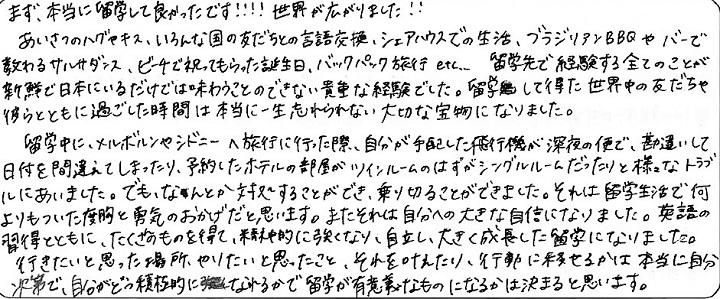 まず、本当に留学して良かったです!!!! 世界が広がりました!!
あいさつのハグやキス、いろんな国の友だちとの言語交換、シェアハウスでの生活、ブラジリアンBBQやバーで
教わるサルサダンス、ビーチで祝ってもらった誕生日、バックパック旅行 etc... 留学先で経験する全てのことが
新鮮で日本にいるだけでは味わうことのできない貴重な経験でした。留学して得た世界中の友だちや
彼らとともに過ごした時間は本当に一生忘れられない大切な宝物になりました。
留学中に、メルボルンやシドニーへ旅行に行った際、自分が手配した飛行機が深夜の便で、勘違いして
日付を間違えてしまったり、予約したホテルの部屋がツインルームのはずがシングルルームだったりと様々なトラブ
ルにあいました。でも、なんとか対処することができ、乗り切ることができました。それは留学生活で何
よりもついた度胸と勇気のおかげだと思います。またそれは自分への大きな自信になりました。英語の
習得とともに、たくさものを得て、精神的に強くなり、自立し、大きく成長した留学になりました。
行きたいと思った場所、やりたいと思ったこと、それを叶えたり、行動に移せるかは本当に自分
次第で、自分がどう積極的になれるかで留学が有意義なものになるかは決まると思います。